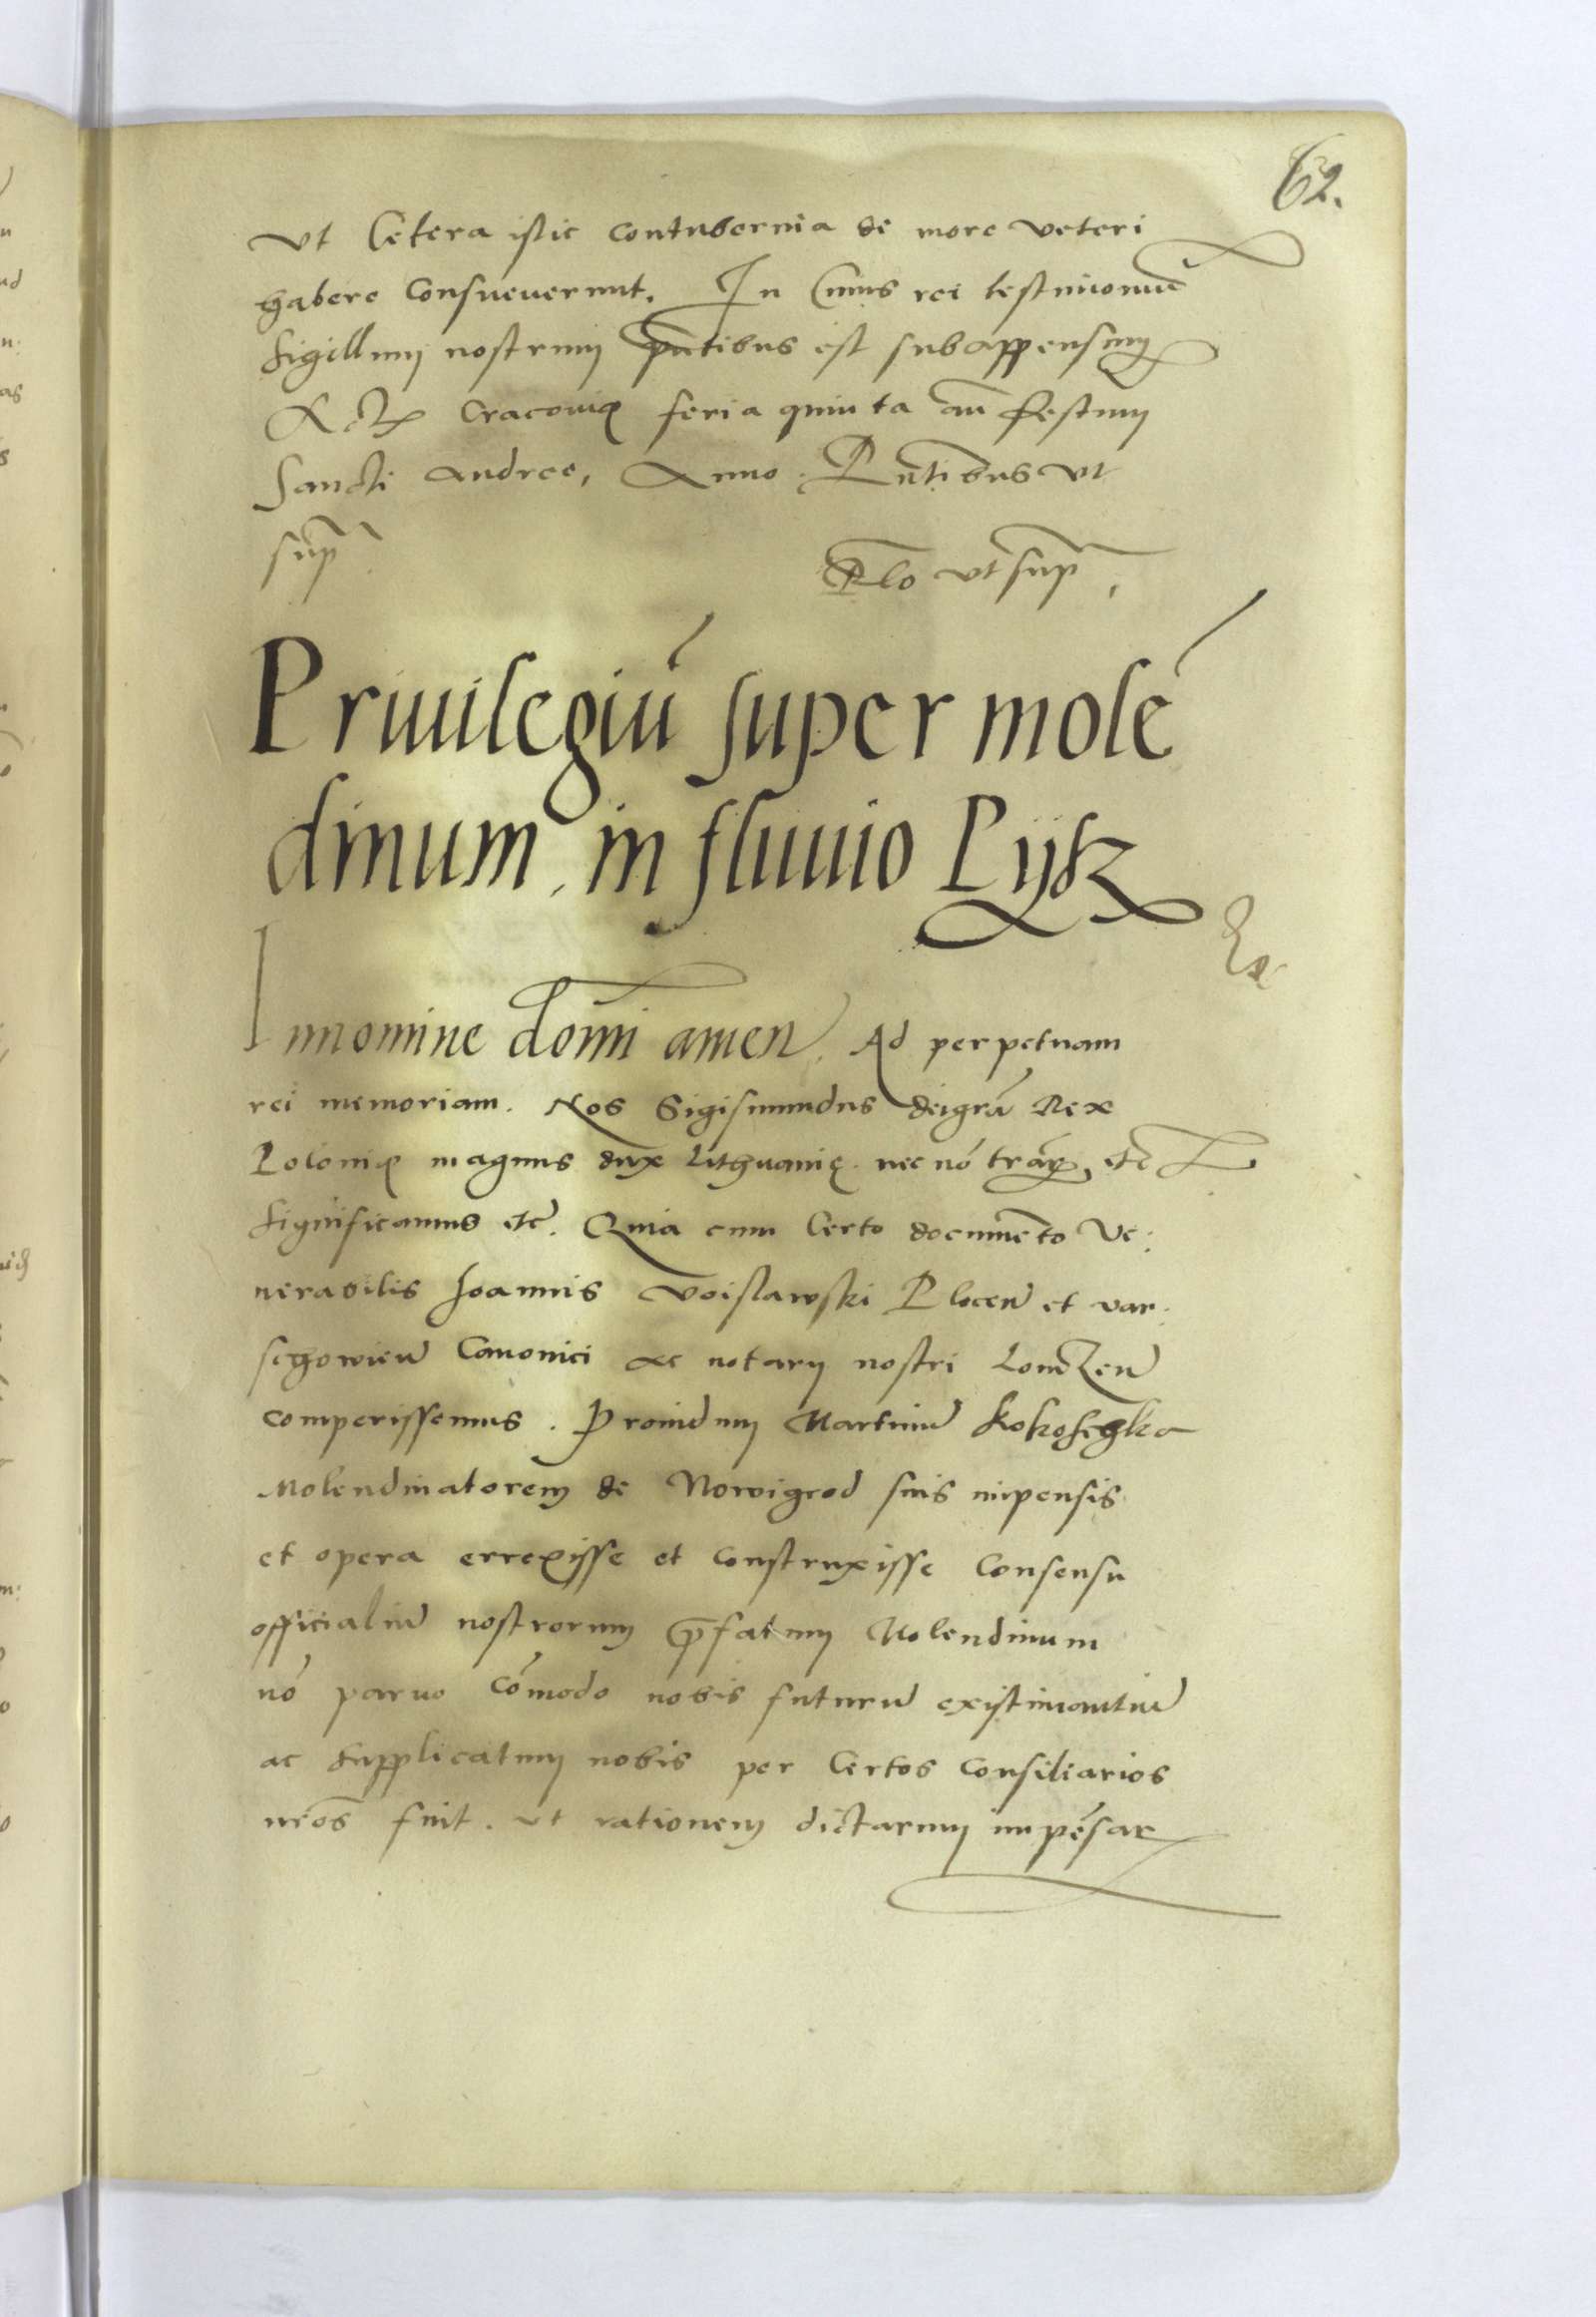 62.
Vt Cetera istic contubernia de more veteri
habere Consueuerunt. In Cuius rei testimoniū
Sigillum nostrum pn̄tibus est subappensum
Act Cracouię feria quinta añ festum
Sancti Andree, Anno. Pn̄tibus vt
sup̄
Rlo vt sup̄.
Priuilegiū super molē
dinum, in fluuio Pysz
In nomine domi amen. Ad perpetuam
rei memoriam. Nos Sigismundus deigrā Rex
Polonię magnus dux Lithuanię. nec nō trār, etc
Significamus etc. Quia cum Certo documēto Ve:
nerabilis Joannis Voislawski Plocen̄ et var:
schowien̄ Canonici ac notarij nostri Lomzen̄
comperissemus. Prouidum Martinū Kokoschka
Molendinatorem de Nowigrod suis impensis
et opera errexisse et construxisse Consensu
officialiū nostrorum p̄fatum Molendinum
nō paruo Cōmodo nobis futurū existimantiū
ac supplicatum nobis per Certos Consiliarios
nr̄os fuit. vt rationem dictarum impēsar